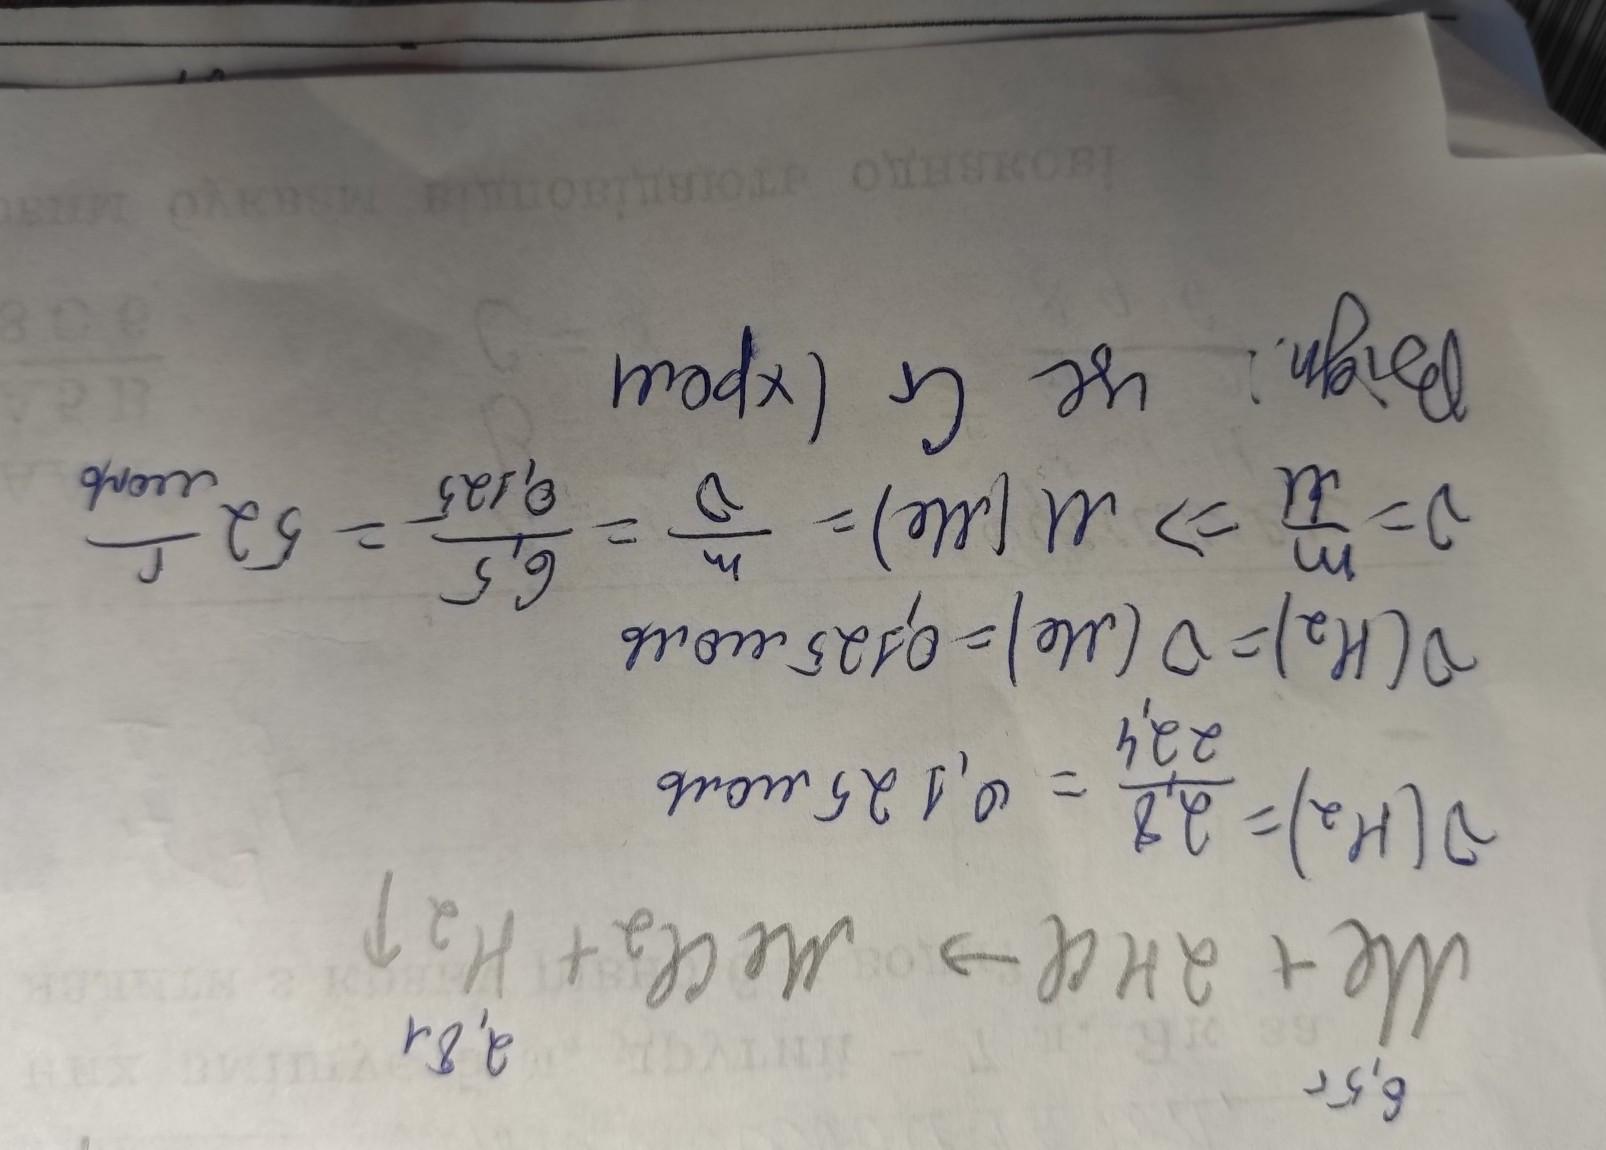 6,5г 2,8л
Me + 2HCl → MeCl₂ + H₂↑
ν(H₂) = 2,8/22,4 = 0,125 моль
ν(H₂) = ν(Me) = 0,125 моль
ν = m/M => M(Me) = m/ν = 6,5/0,125 = 52 г/моль
Відп.: це Cr (хром